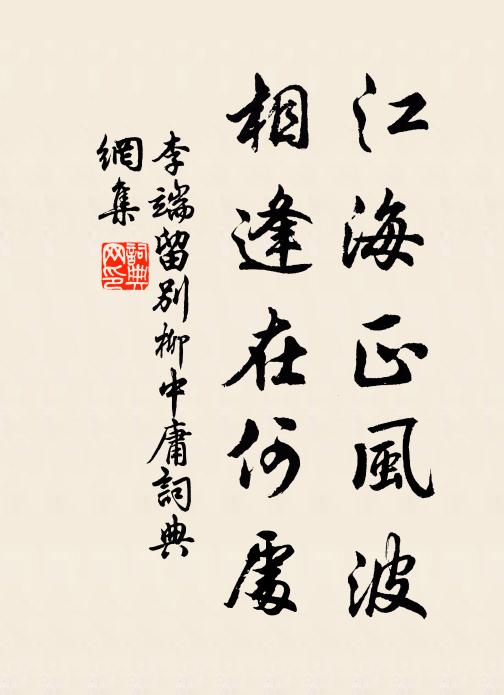 江海正風波
相逢在何處
李端留别柳中庸詞典
網集
詞典
网印